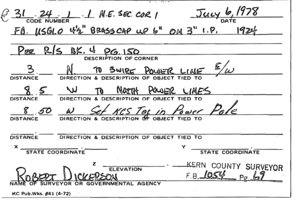 31 . 24 . 1 . 1 N.E. SEC COR 1 July 6, 1978
CODE NUMBER DATE
FD. USGLO 4½" BRASS CAP UP 6" ON 3" I.P. 1924
PER R/S BK. 4 PG. 150
DESCRIPTION OF CORNER
3 N. TO 3 WIRE POWER LINE E/W
DISTANCE DIRECTION & DESCRIPTION OF OBJECT TIED TO
8.5 W TO NORTH POWER LINES
DISTANCE DIRECTION & DESCRIPTION OF OBJECT TIED TO
8.50 N Set KCS Tag in Power Pole
DISTANCE DIRECTION & DESCRIPTION OF OBJECT TIED TO
DISTANCE DIRECTION & DESCRIPTION OF OBJECT TIED TO
X Y
STATE COORDINATE STATE COORDINATE
Z
ELEVATION KERN COUNTY SURVEYOR
ROBERT DICKERSON F.B. 1054 Pg. 69
NAME OF SURVEYOR OR GOVERNMENTAL AGENCY
KC Pub.Wks. #41 (4-72)